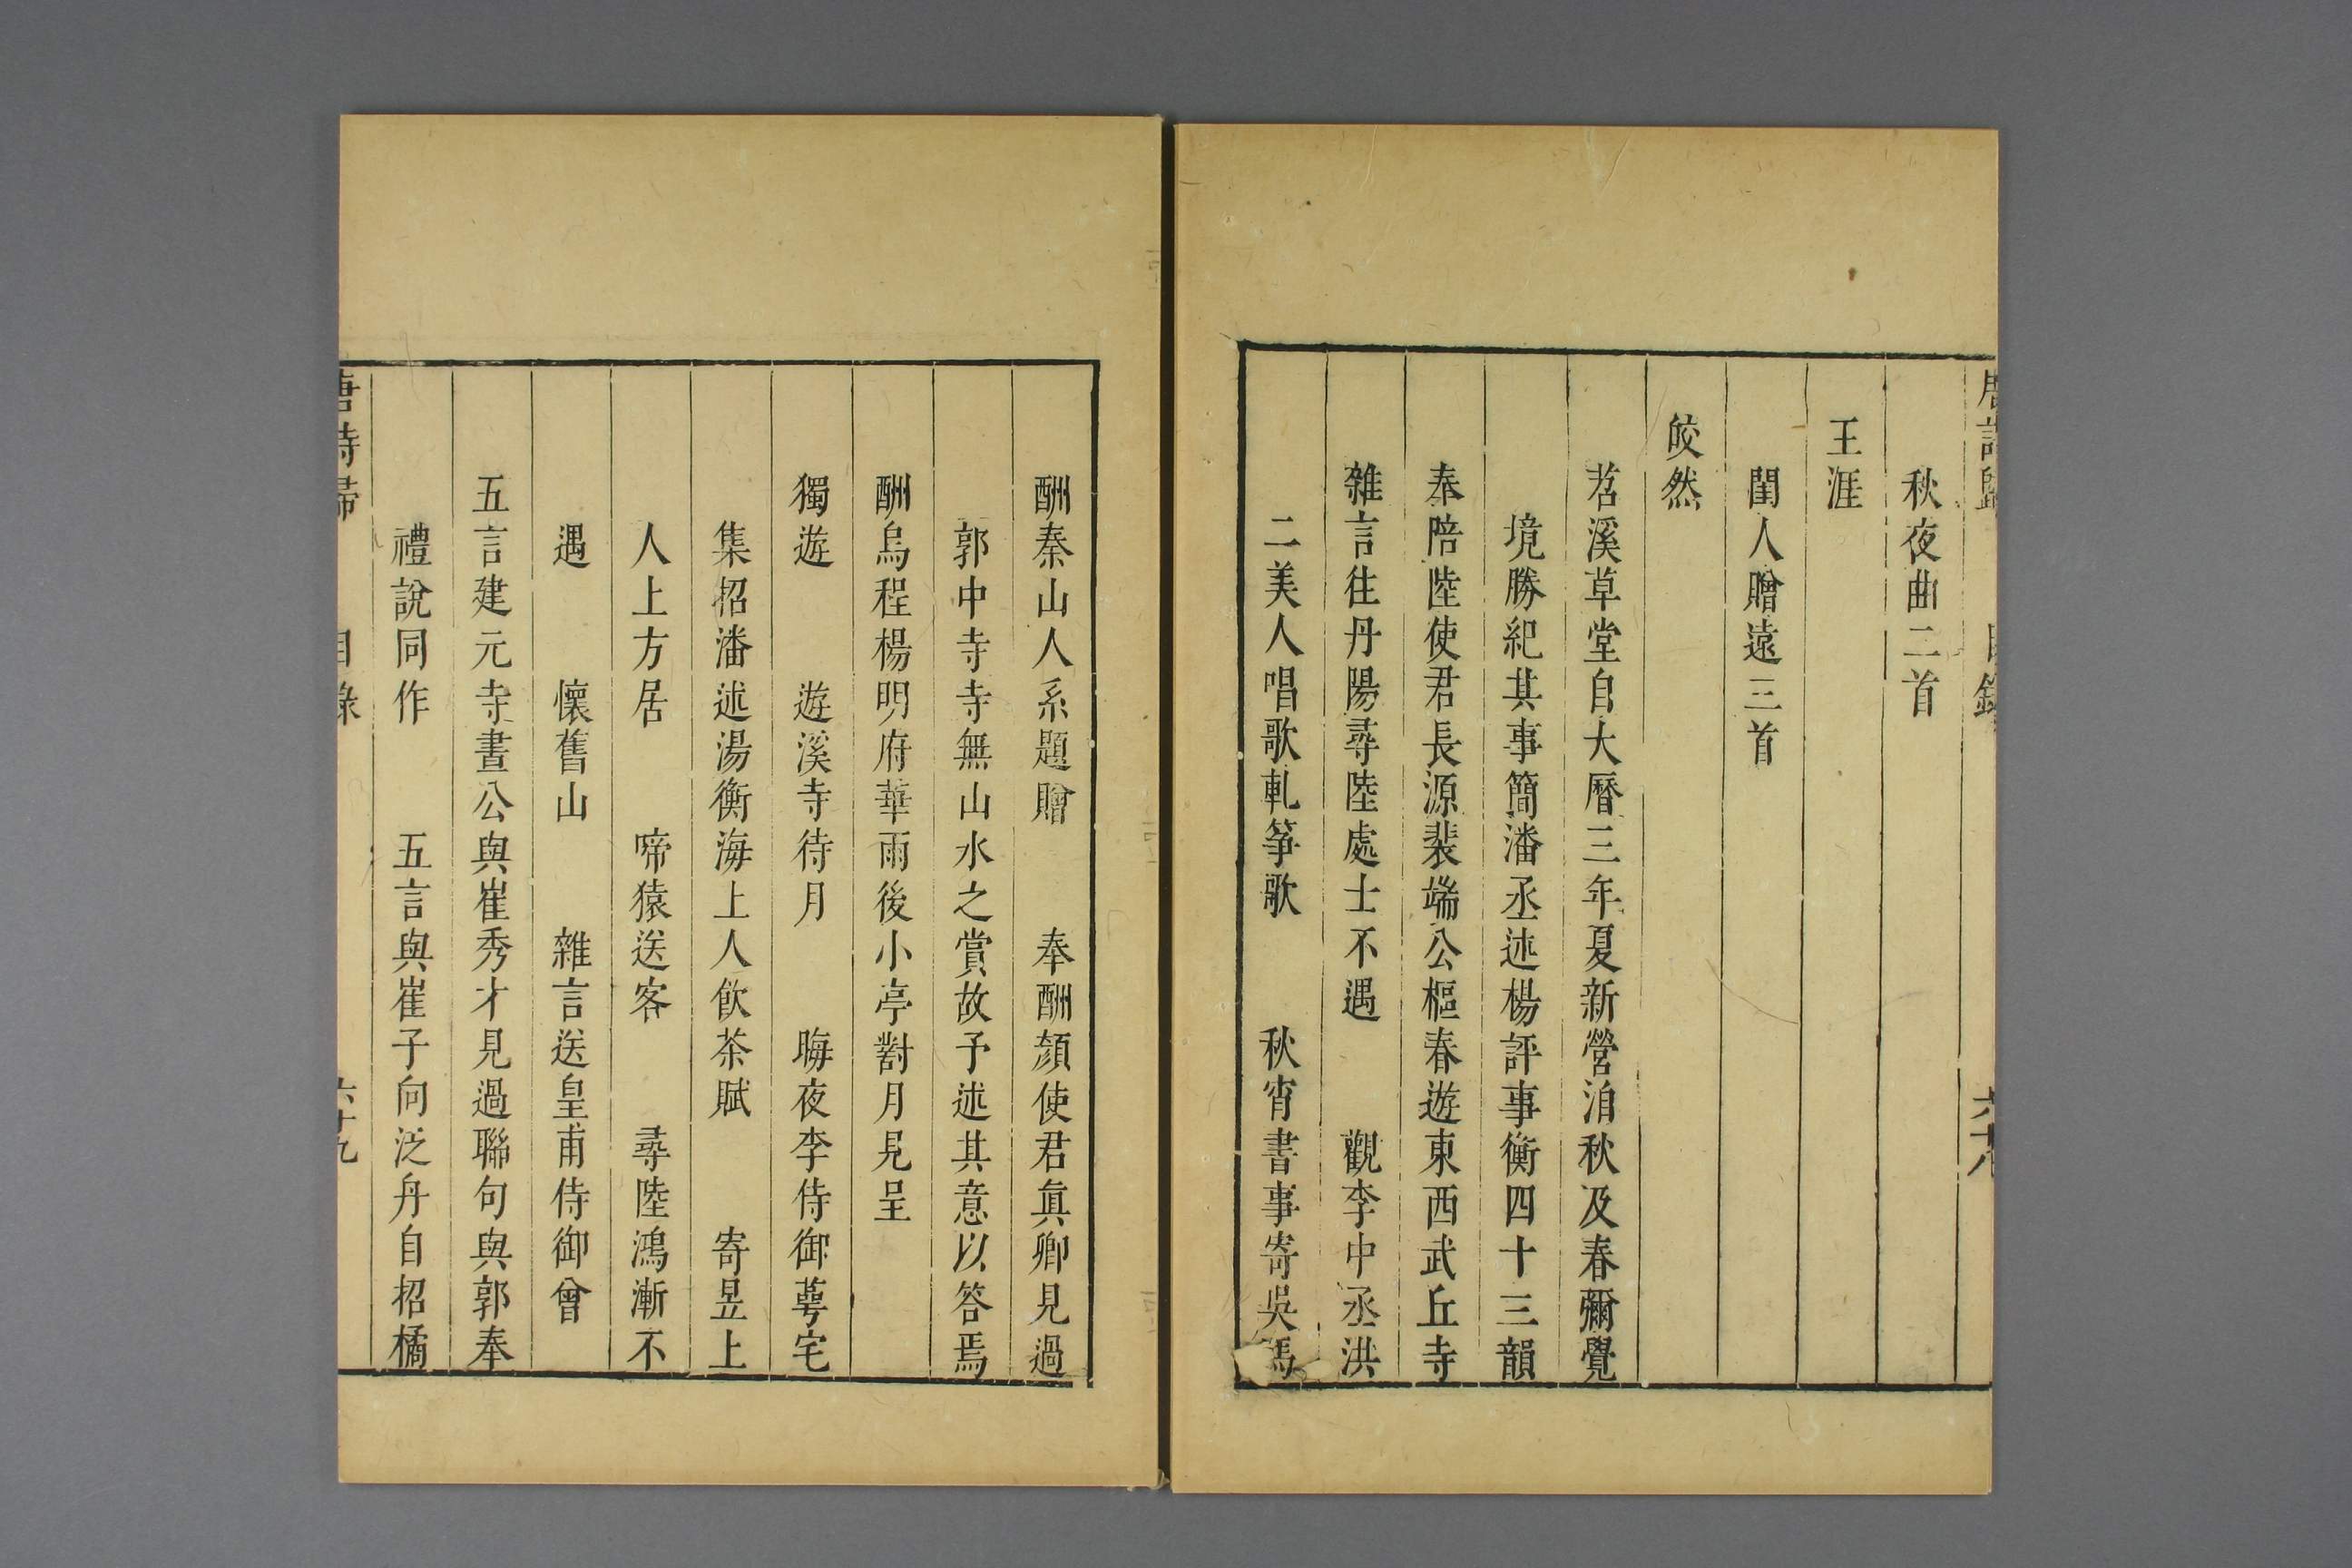 唐詩歸 目錄 六十八
秋夜曲二首
王涯
閨人贈遠三首
皎然
苕溪草堂自大曆三年夏新營洎秋及春彌覺
境勝紀其事簡潘丞述楊評事衡四十三韻
奉陪陸使君長源裴端公樞春遊東西武丘寺
雜言往丹陽尋陸處士不遇 觀李中丞洪
二美人唱歌軋筝歌 秋宵書事寄吳馮
酬秦山人系題贈 奉酬顏使君真卿見過
郭中寺寺無山水之賞故予述其意以答焉
酬烏程楊明府華雨後小亭對月見呈
獨遊 遊溪寺待月 晦夜李侍御萼宅
集招潘述湯衡海上人飲茶賦 寄昱上
人上方居 啼猿送客 尋陸鴻漸不
遇 懷舊山 雜言送皇甫侍御曾
五言建元寺晝公與崔秀才見過聯句與郭奉
禮說同作 五言與崔子向泛舟自招橘
唐詩歸 目錄 六十九